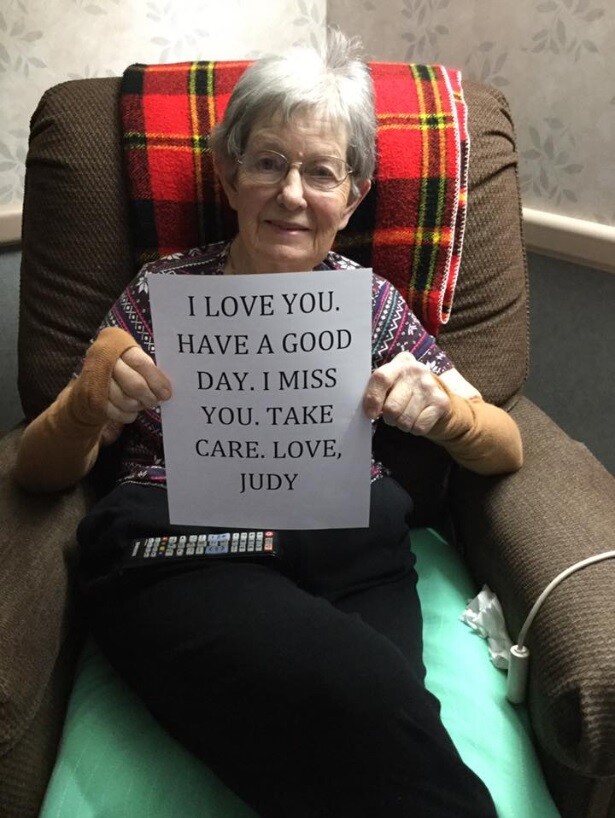 I LOVE YOU.
HAVE A GOOD
DAY. I MISS
YOU. TAKE
CARE. LOVE,
JUDY